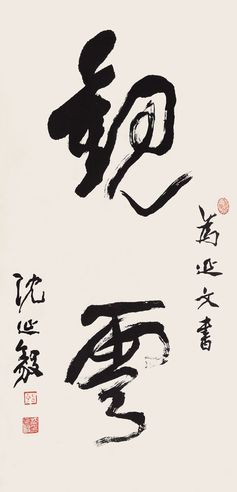 觀雲
為延文書
沈延毅